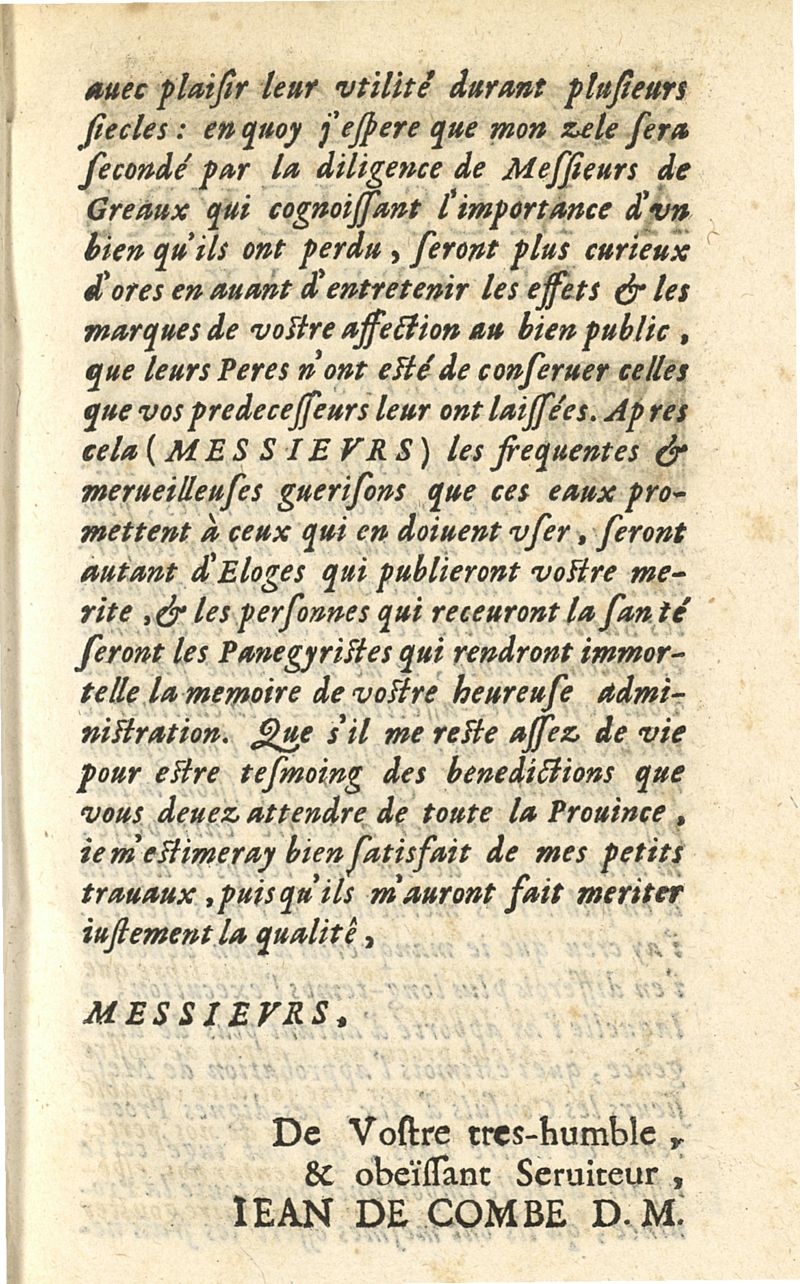 auec plaiſir leur vtilité durant pluſieurs
ſiecles : en quoy j'eſpere que mon zele ſera
ſecondé par la diligence de Meſſieurs de
Greaux qui cognoiſſant l'importance d'vn
bien qu'ils ont perdu, ſeront plus curieux
d'ores en auant d'entretenir les effets & les
marques de voſtre affection au bien public,
que leurs Peres n'ont eſté de conſeruer celles
que vos predeceſſeurs leur ont laiſſées. Apres
cela (MESSIEVRS) les frequentes &
merueilleuſes gueriſons que ces eaux pro-
mettent à ceux qui en doiuent vſer, ſeront
autant d'Eloges qui publieront voſtre me-
rite, & les perſonnes qui receuront la ſanté
ſeront les Panegyriſtes qui rendront immor-
telle la memoire de voſtre heureuſe admi-
niſtration. Que s'il me reſte aſſez de vie
pour eſtre teſmoing des benedictions que
vous deuez attendre de toute la Prouince,
ie m'eſtimeray bien ſatisfait de mes petits
trauaux, puisqu'ils m'auront fait meriter
iuſtement la qualitê,
MESSIEVRS,
De Voſtre tres-humble,
& obeïſſant Seruiteur,
IEAN DE COMBE D. M.